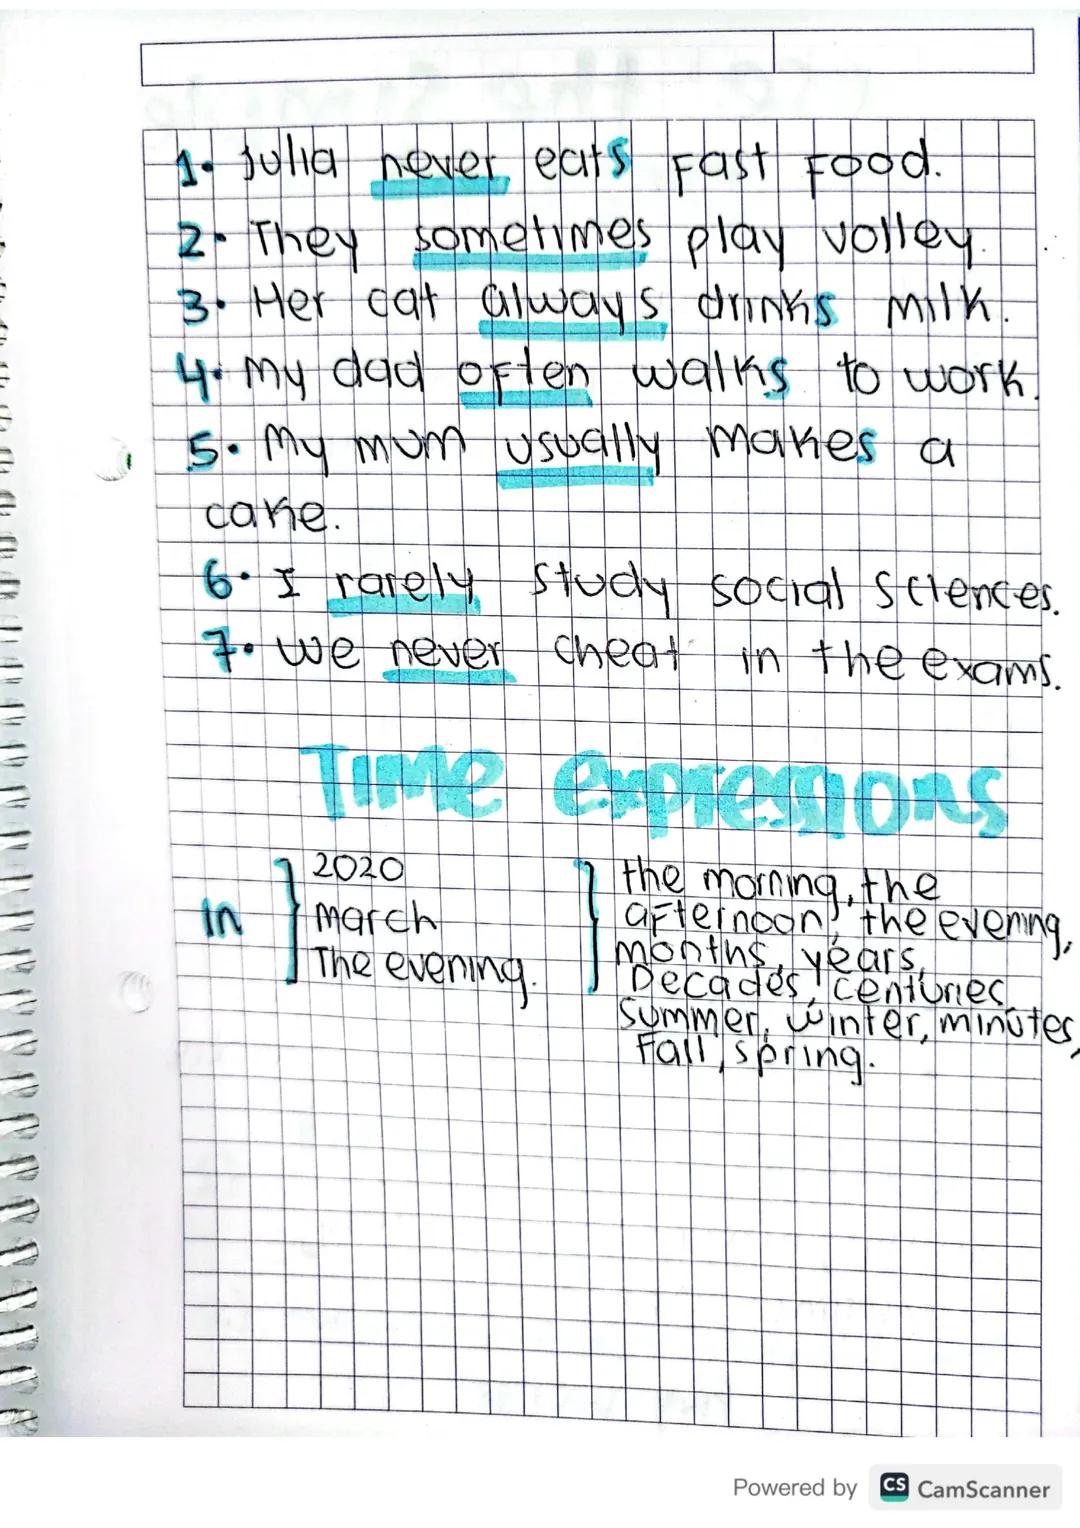 1. Julia never eats Fast Food.
2. They sometimes play volley.
3. Her cat always drinks milk.
4. My dad often walks to work.
5. My mum usually makes a
cake.
6. I rarely study social sciences.
7. We never cheat in the exams.
Time expressions
in
2020
march
The evening.
the morning, the
afternoon, the evening,
months, years,
Decades, centuries,
summer, winter, minutes,
Fall, spring.
Powered by CS CamScanner